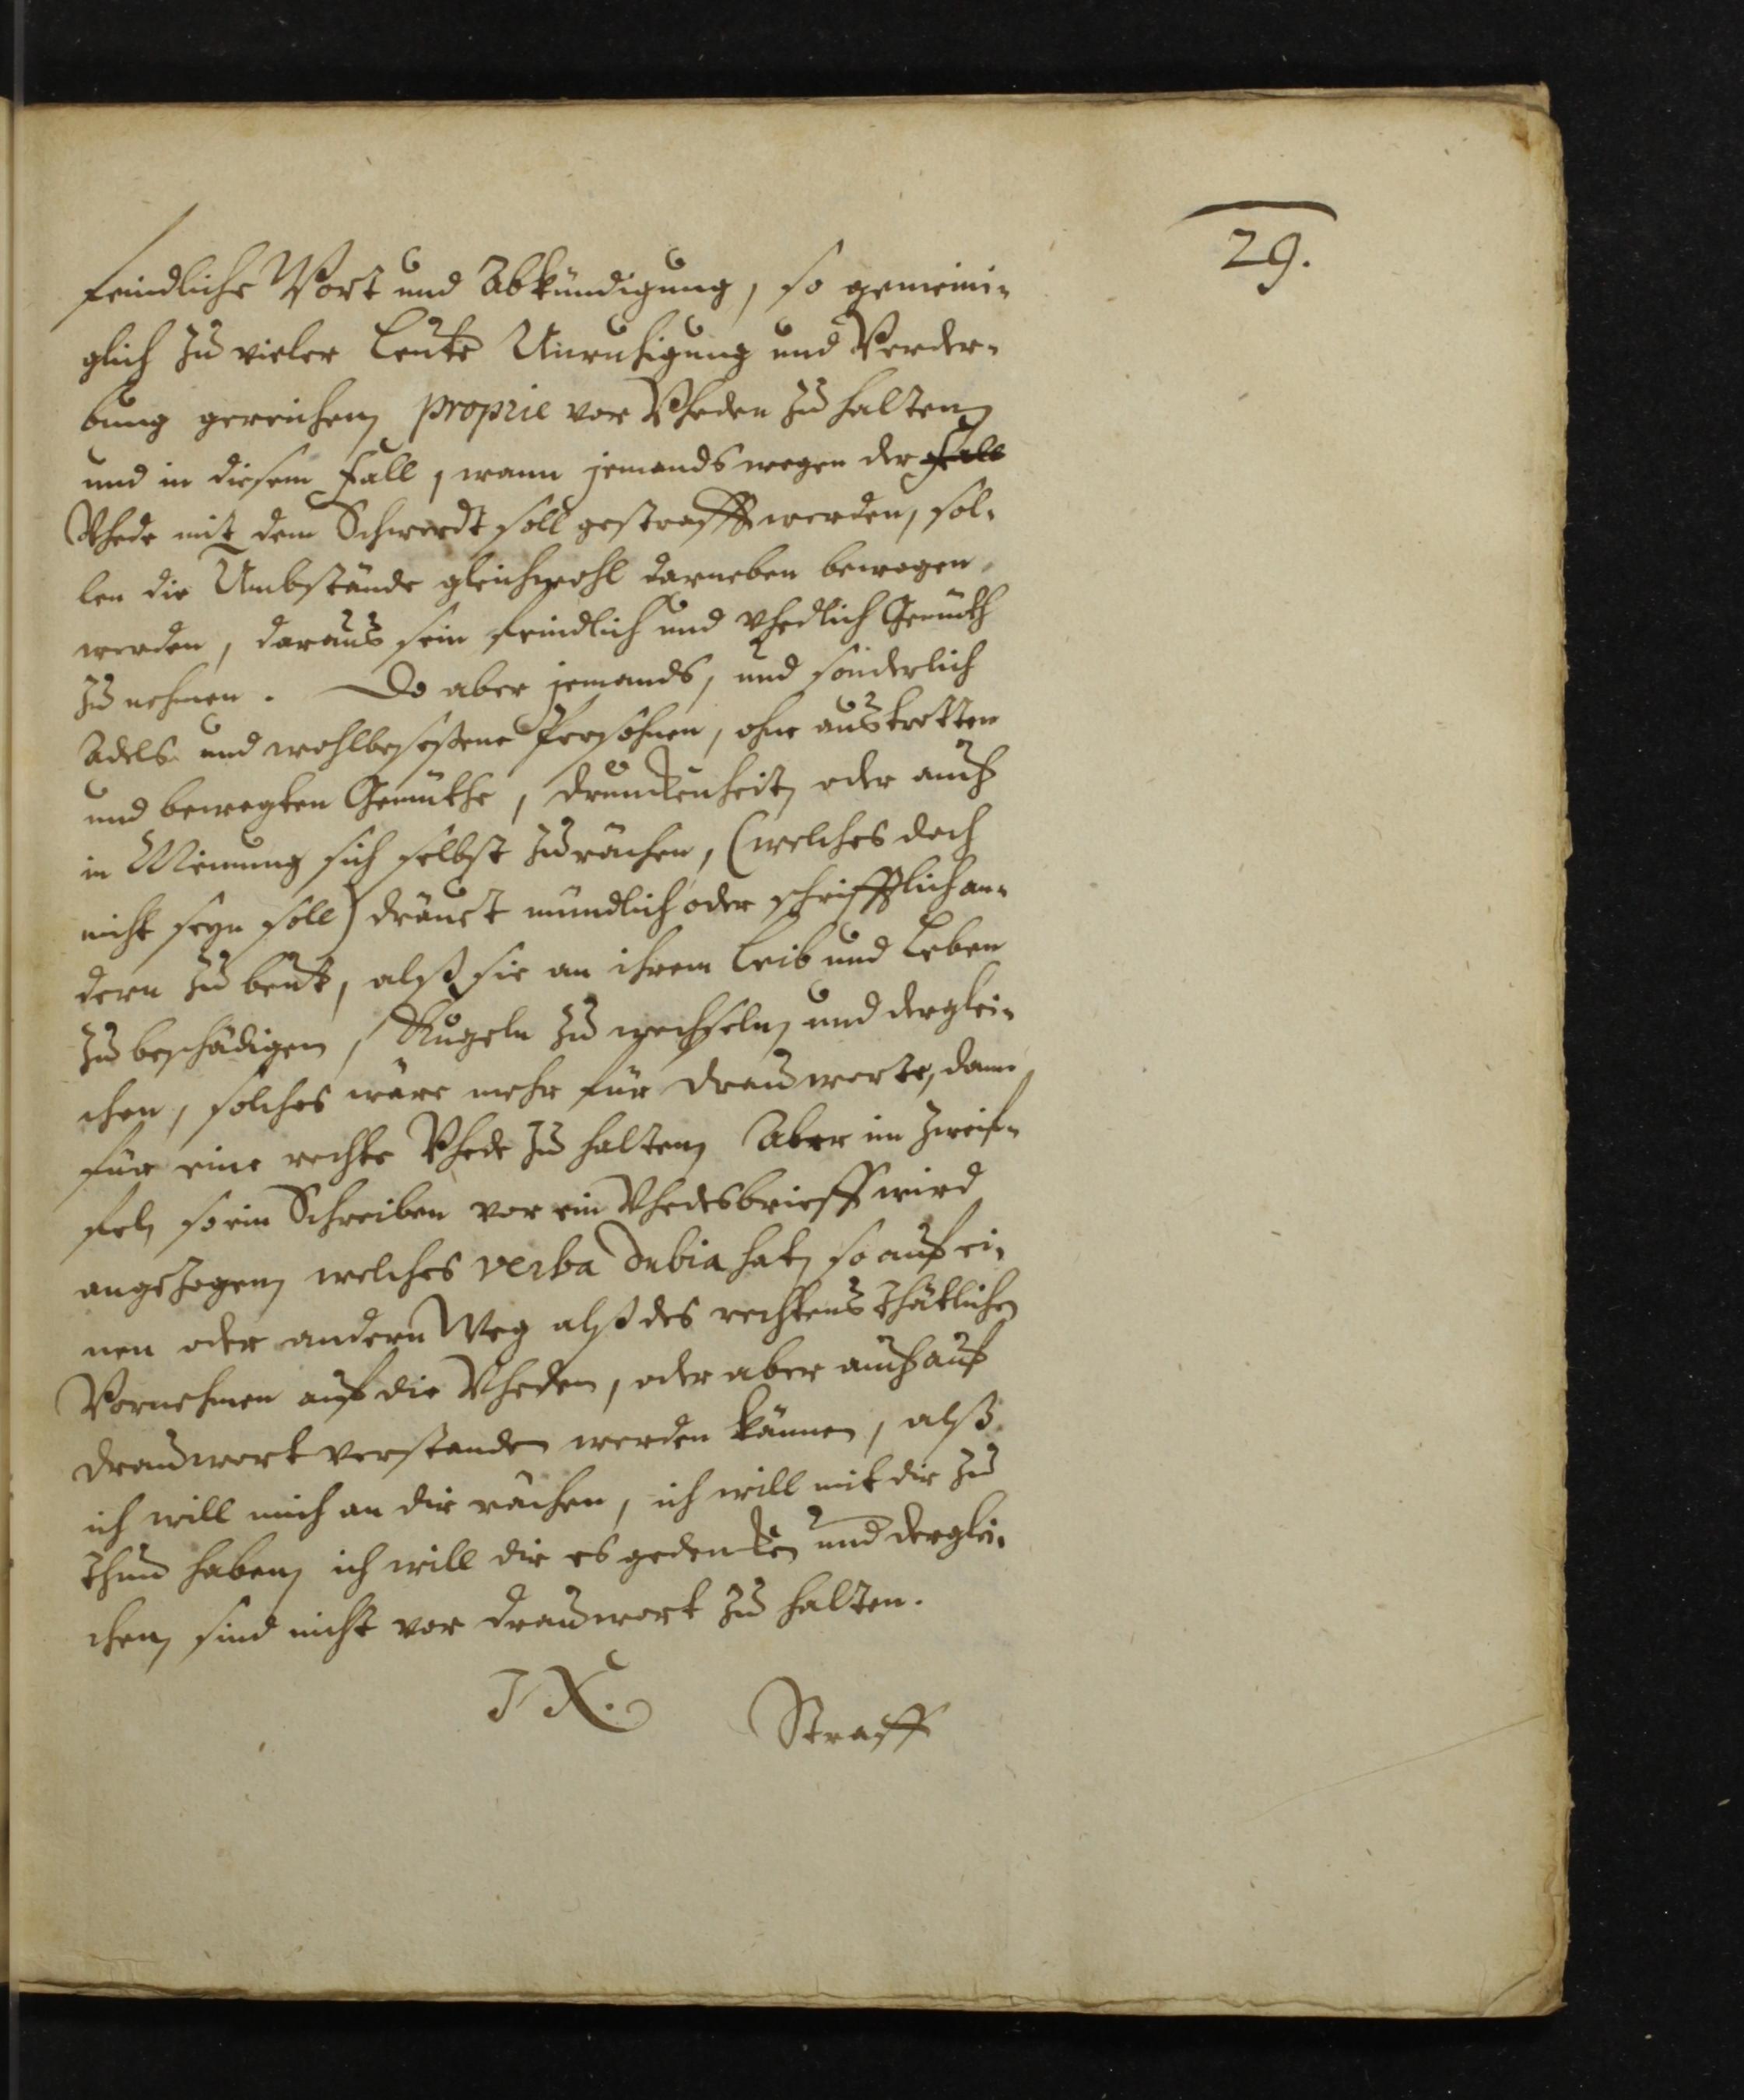 29.
feindliche Wort und Abkündigung, so gemeini-
glich zu vieler Leute Unruhigung und Verder-
bung gereichen, proprie vor Vheden zu halten,
und in diesem Fall, wann jemands wegen der Fall
Vhede mit dem Schwerdt soll gestrafft werden, sol-
len die Umbstände gleichwohl darneben bewogen
werden, daraus sein feindlich und vhedlich Gemüth
zu nehmen. Do aber jemands, und sonderlich
Adels und wohlbeseßene Persohnen, ohne austretten
und bewegten Gemüthe, Drunckenheit, oder auch
in Meinung sich selbst zu rächen, (welches doch
nicht seyn soll) dräuet mündlich oder schrifftlich an-
dern zu beut, alß sie an ihrem Leib und Leben
zu beschädigen, Kugeln zu wechseln, und derglei-
chen, solches wäre mehr für Drauworte, dann
für eine rechte Vhede zu halten, Aber im Zweif-
fel, so ein Schreiben vor ein Vhedesbrieff wird
angezogen, welches verba dubia hat, so auf ei-
nen oder andern Weg alß des rechtens thätlichen
Vornehmen auf die Vheden, oder aber auch auf
Drauwort verstanden werden können, alß
ich will mich an dir rächen, ich will mit dir zu
thun haben, ich will dir es gedencken und derglei-
chen, sind nicht vor Drauwort zu halten.
IX.
Straff